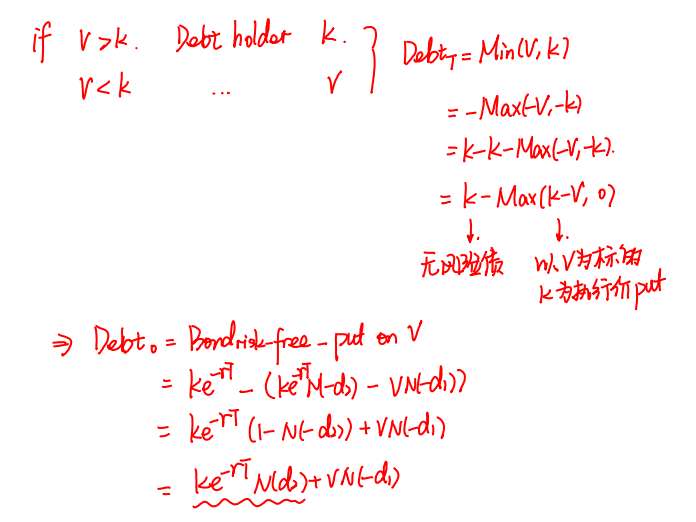 if V>k. Debt holder k.
V<k ... V
Debt_T = Min(V, k)
= -Max(-V, -k)
= k-k-Max(-V, -k).
= k-Max(k-V, 0)
无风险债
以V为标的
k为执行价put
⇒ Debt₀ = Bond risk-free - put on V
= ke^{-rT} - (ke^{-rT}N(-d₂) - VN(-d₁))
= ke^{-rT} (1-N(-d₂)) + VN(-d₁)
= ke^{-rT} N(d₂) + VN(-d₁)